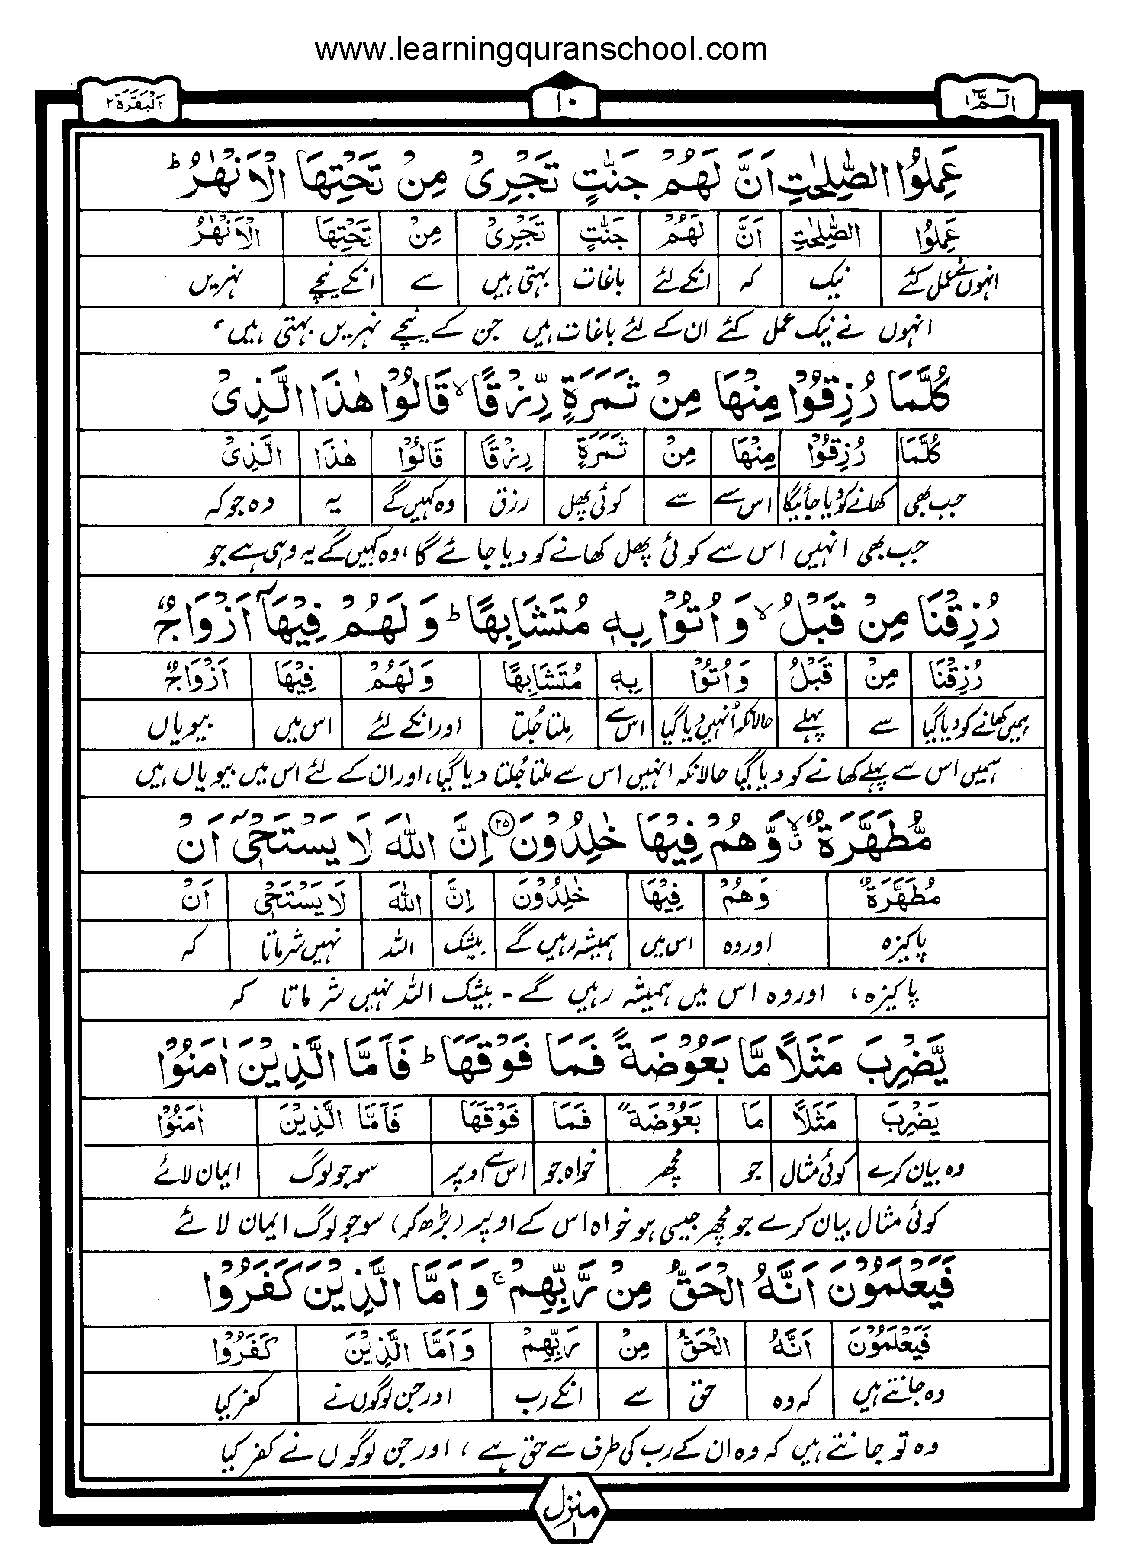 www.learningquranschool.com
الٓـمّٓ ١ ١٠ اَلْبَقَرَة ٢
عَمِلُوا الصّٰلِحٰتِ اَنَّ لَهُمْ جَنّٰتٍ تَجْرِیْ مِنْ تَحْتِهَا الْاَنْهٰرُ ؕ
عَمِلُوا الصّٰلِحٰتِ اَنَّ لَهُمْ جَنّٰتٍ تَجْرِیْ مِنْ تَحْتِهَا الْاَنْهٰرُ
انہوں نے عمل کئے نیک کہ انکے لئے باغات بہتی ہیں سے انکے نیچے نہریں
انہوں نے نیک عمل کئے ان کے لئے باغات ہیں جن کے نیچے نہریں بہتی ہیں،
كُلَّمَا رُزِقُوْا مِنْهَا مِنْ ثَمَرَةٍ رِّزْقًا ۙ قَالُوْا هٰذَا الَّذِیْ
كُلَّمَا رُزِقُوْا مِنْهَا مِنْ ثَمَرَةٍ رِزْقًا قَالُوْا هٰذَا الَّذِیْ
جب بھی کھانے کو دیا جائیگا اس سے سے کوئی پھل رزق وہ کہیں گے یہ وہ جو کہ
جب بھی انہیں اس سے کوئی پھل کھانے کو دیا جائے گا، وہ کہیں گے یہ وہی ہے جو
رُزِقْنَا مِنْ قَبْلُ ۙ وَاُتُوْا بِهٖ مُتَشَابِهًا ؕ وَلَهُمْ فِیْهَاۤ اَزْوَاجٌ
رُزِقْنَا مِنْ قَبْلُ وَاُتُوْا بِهٖ مُتَشَابِهًا وَلَهُمْ فِیْهَا اَزْوَاجٌ
ہمیں کھانے کو دیا گیا سے پہلے حالانکہ اُنہیں دیا گیا اس سے مِلتا جُلتا اور انکے لئے اس میں بیویاں
ہمیں اس سے پہلے کھانے کو دیا گیا حالانکہ انہیں اس سے ملتا جُلتا دیا گیا، اور ان کے لئے اس میں بیویاں ہیں
مُّطَهَّرَةٌ ۙ وَّهُمْ فِیْهَا خٰلِدُوْنَ ۲۵ اِنَّ اللّٰهَ لَا یَسْتَحْیٖۤ اَنْ
مُطَهَّرَةٌ وَهُمْ فِیْهَا خٰلِدُوْنَ اِنَّ اللّٰهَ لَا یَسْتَحْیٖ اَنْ
پاکیزہ اور وہ اس میں ہمیشہ رہیں گے بیشک اللہ نہیں شرماتا کہ
پاکیزہ، اور وہ اس میں ہمیشہ رہیں گے - بیشک اللہ نہیں شرماتا کہ
یَّضْرِبَ مَثَلًا مَّا بَعُوْضَةً فَمَا فَوْقَهَا ؕ فَاَمَّا الَّذِیْنَ اٰمَنُوْا
یَضْرِبَ مَثَلًا مَا بَعُوْضَةً فَمَا فَوْقَهَا فَاَمَّا الَّذِیْنَ اٰمَنُوْا
وہ بیان کرے کوئی مثال جو مچھر خواہ جو اس سے اوپر سو جو لوگ ایمان لائے
کوئی مثال بیان کرے جو مچھر جیسی ہو خواہ اس کے اوپر (بڑھ کر) سو جو لوگ ایمان لائے
فَیَعْلَمُوْنَ اَنَّهُ الْحَقُّ مِنْ رَّبِّهِمْ ۚ وَاَمَّا الَّذِیْنَ كَفَرُوْا
فَیَعْلَمُوْنَ اَنَّهُ الْحَقُّ مِنْ رَبِّهِمْ وَاَمَّا الَّذِیْنَ كَفَرُوْا
وہ جانتے ہیں کہ وہ حق سے انکے رب اور جن لوگوں نے کفر کیا
وہ تو جانتے ہیں کہ وہ ان کے رب کی طرف سے حق ہے، اور جن لوگوں نے کفر کیا
منزل ۱